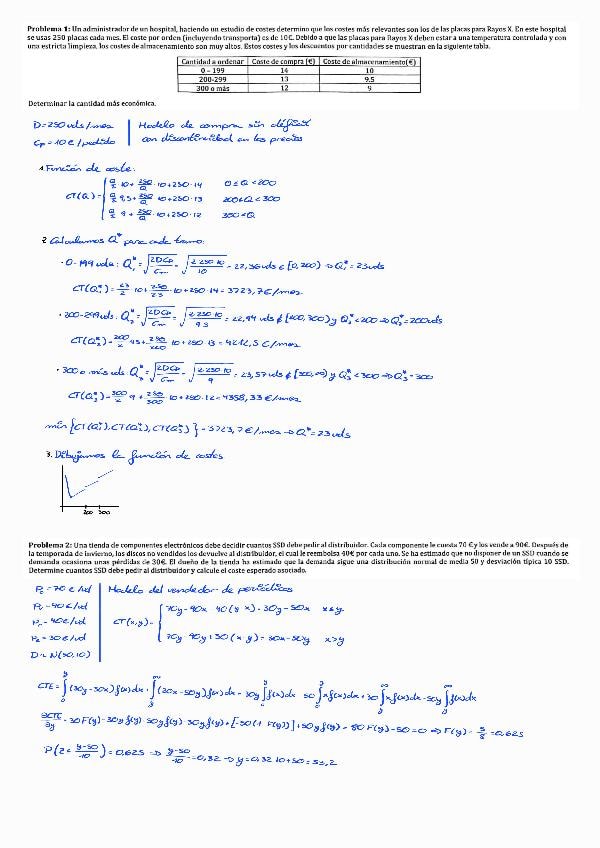 Problema 1: Un administrador de un hospital, haciendo un estudio de costes determino que los costes más relevantes son los de las placas para Rayos X. En este hospital
se usas 250 placas cada mes. El coste por orden (incluyendo transporta) es de 10€. Debido a que las placas para Rayos X deben estar a una temperatura controlada y con
una estricta limpieza, los costes de almacenamiento son muy altos. Estos costes y los descuentos por cantidades se muestran en la siguiente tabla.
Cantidad a ordenar Coste de compra (€) Coste de almacenamiento(€)
0 – 199 14 10
200-299 13 9.5
300 o más 12 9
Determinar la cantidad más económica.
D=250 uds/mes Modelo de compra sin déficit
Cp=10€/pedido con discontinuidad en los precios
1. Función de coste:
Q/2·10+250/Q·10+250·14 0≤Q<200
CT(Q)= Q/2·9,5+250/Q·10+250·13 200≤Q<300
Q/2·9+250/Q·10+250·12 300≤Q
2. Calculamos Q* para cada tramo:
·0-199 uds: Q₁*=√(2DCp/Cm)=√(2·250·10/10)=22,36 uds ∈ [0,200) ⇒ Q₁*=23 uds
CT(Q₁*)=23/2·10+250/23·10+250·14=3723,7€/mes
·200-299 uds: Q₂*=√(2DCp/Cm)=√(2·250·10/9.5)=22,94 uds ∉ [200,300) y Q₂*<200 ⇒ Q₂*=200 uds
CT(Q₂*)=200/2·9,5+250/200·10+250·13=4212,5 €/mes
·300 o más uds: Q₃*=√(2DCp/Cm)=√(2·250·10/9)=23,57 uds ∉ [300,∞) y Q₃*<300 ⇒ Q₃*=300
CT(Q₃*)=300/2·9+250/300·10+250·12=4358,33€/mes
min{CT(Q₁*),CT(Q₂*),CT(Q₃*)}=3723,7€/mes ⇒ Q*=23 uds
3. Dibujamos la función de costes
200 300
Problema 2: Una tienda de componentes electrónicos debe decidir cuantos SSD debe pedir al distribuidor. Cada componente le cuesta 70 € y los vende a 90€. Después de
la temporada de invierno, los discos no vendidos los devuelve al distribuidor, el cual le reembolsa 40€ por cada uno. Se ha estimado que no disponer de un SSD cuando se
demanda ocasiona unas pérdidas de 30€. El dueño de la tienda ha estimado que la demanda sigue una distribución normal de media 50 y desviación típica 10 SSD.
Determine cuantos SSD debe pedir al distribuidor y calcule el coste esperado asociado.
Pc=70€/ud Modelo del vendedor de periódicos
Pv=90€/ud 70y-90x-40(y-x)=30y-50x x≤y
Pr=40€/ud CT(x,y)=
P₂=30€/ud 70y-90y+30(x-y)=30x-50y x>y
D~N(50,10)
CTE=∫(30y-50x)f(x)dx+∫(30x-50y)f(x)dx=30y∫f(x)dx-50∫xf(x)dx+30∫xf(x)dx-50y∫f(x)dx
∂CTE/∂y=30F(y)+30yf(y)-50yf(y)-30yf(y)+[-50(1-F(y))]+50yf(y)=80F(y)-50=0 ⇒ F(y)=5/8=0,625
P(Z<(y-50)/10)=0,625 ⇒ (y-50)/10=0,32 ⇒ y=0,32·10+50=53,2